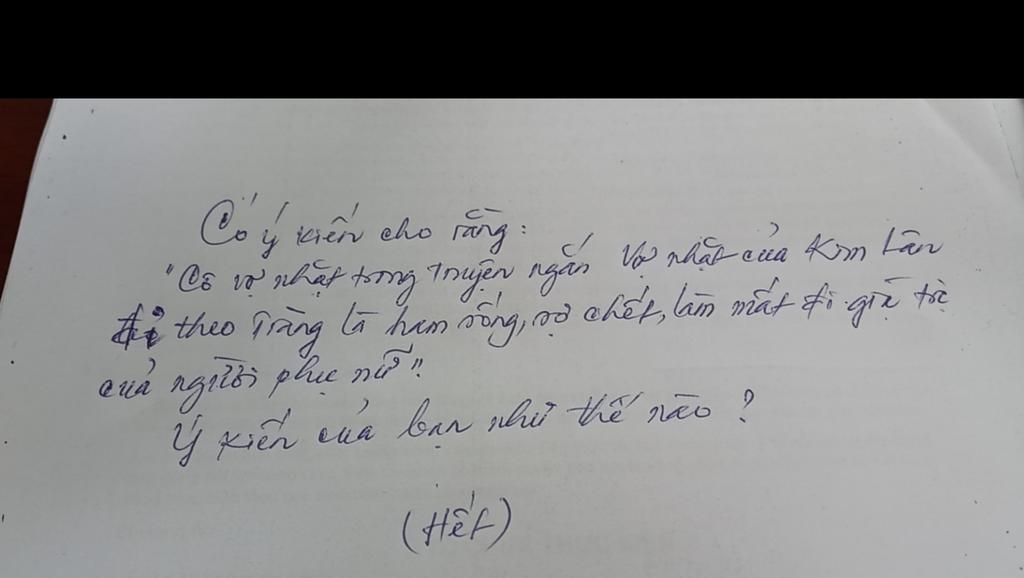 Có ý kiến cho rằng:
"Cô vợ nhặt trong truyện ngắn Vợ nhặt của Kim Lân
theo Tràng là ham sống, sợ chết, làm mất đi giá trị
của người phụ nữ".
Ý kiến của bạn như thế nào?
(Hết)